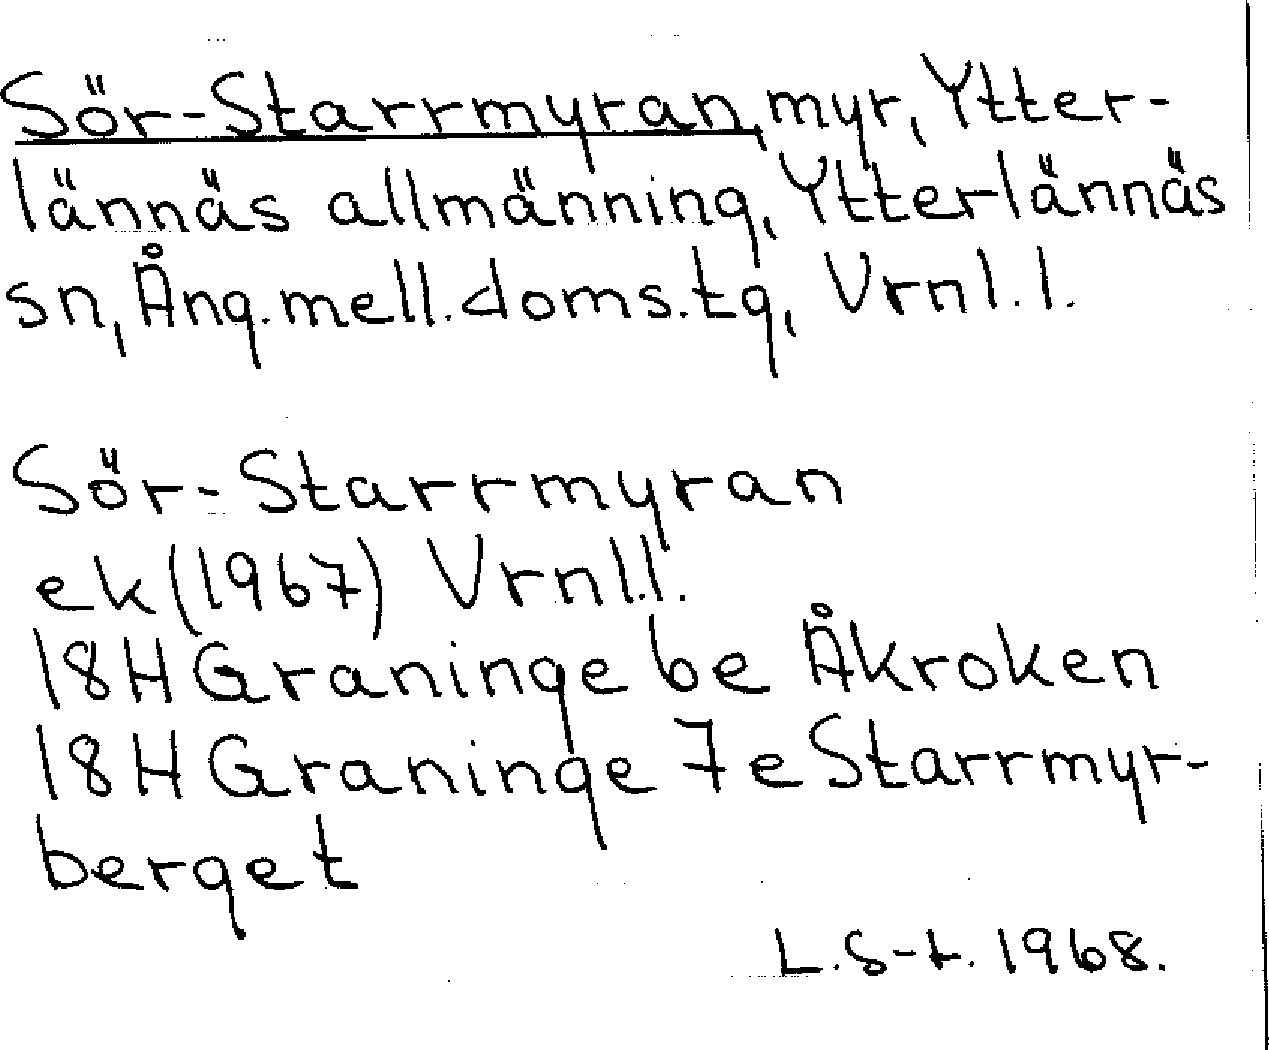 Sör-Starrmyran, myr, Ytter-
lännäs allmänning, Ytterlännäs
sn, Ång.mell.doms.tg, Vrnl.l.
Sör-Starrmyran
ek (1967) Vrnl.l.
18H Graninge 6e Åkroken
18H Graninge 7e Starrmyr-
berget
L.S-t. 1968.